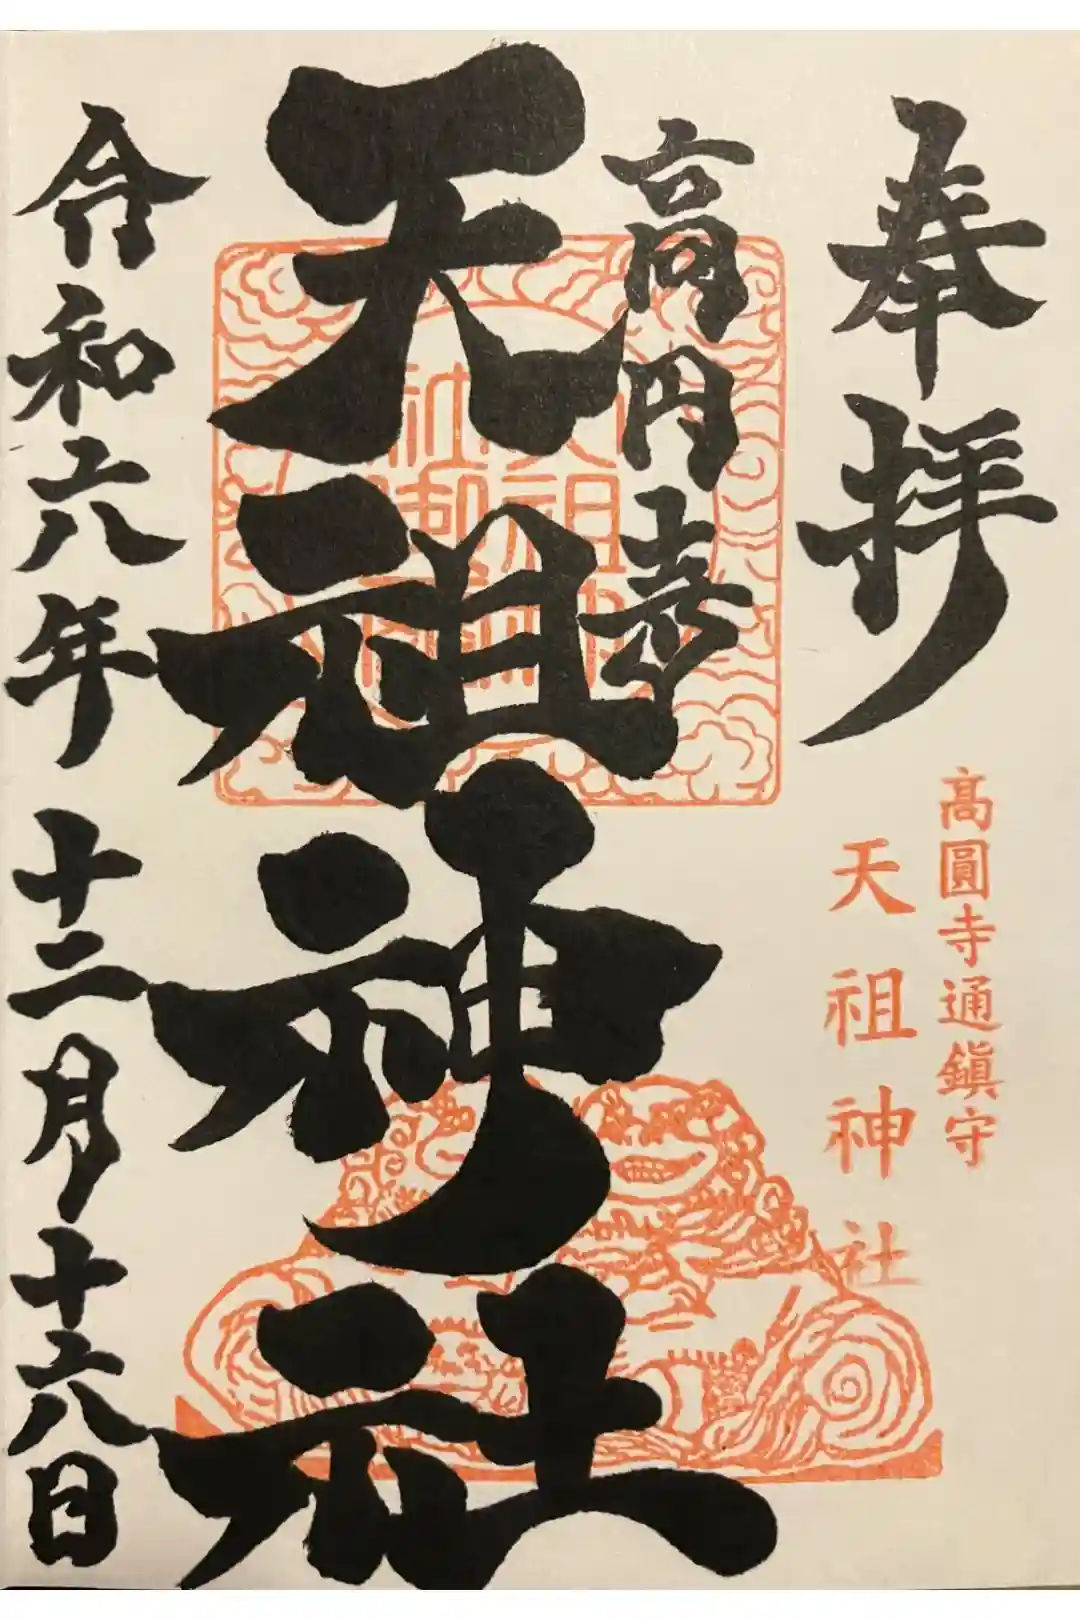 奉拝
高圓寺通鎮守
天祖神社
高円寺
天祖神社
令和六年十二月十六日